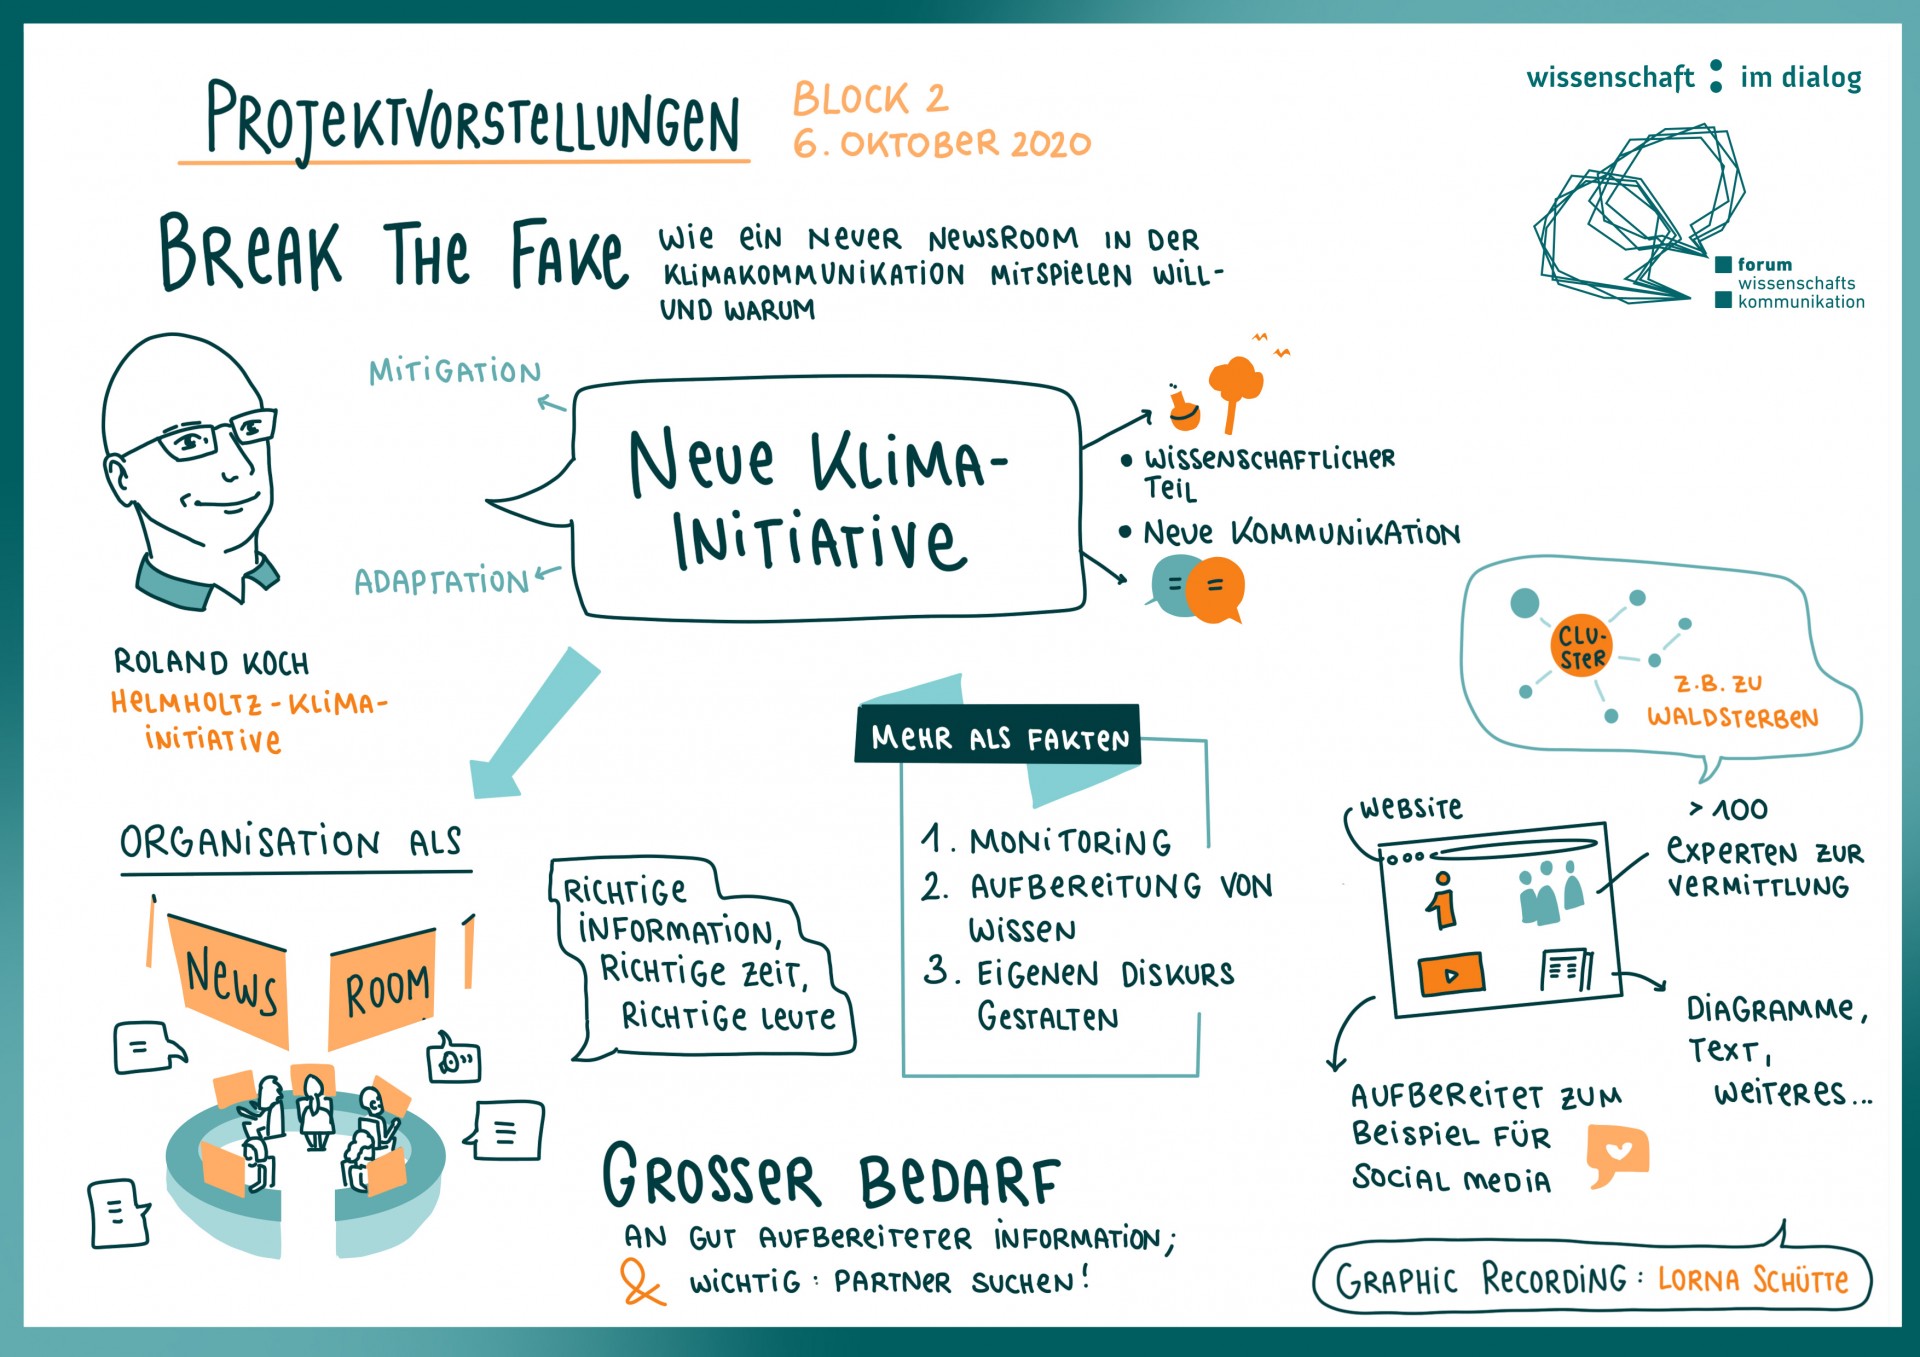 PROJEKTVORSTELLUNGEN
BLOCK 2
6. OKTOBER 2020
wissenschaft : im dialog
forum
wissenschafts
kommunikation
BREAK THE FAKE
WIE EIN NEUER NEWSROOM IN DER
KLIMAKOMMUNIKATION MITSPIELEN WILL-
UND WARUM
MITIGATION
ADAPTATION
NEUE KLIMA-
INITIATIVE
• WISSENSCHAFTLICHER
TEIL
• NEUE KOMMUNIKATION
ROLAND KOCH
HELMHOLTZ-KLIMA-
INITIATIVE
CLU-
STER
Z.B. ZU
WALDSTERBEN
ORGANISATION ALS
NEWS
ROOM
RICHTIGE
INFORMATION,
RICHTIGE ZEIT,
RICHTIGE LEUTE
MEHR ALS FAKTEN
1. MONITORING
2. AUFBEREITUNG VON
WISSEN
3. EIGENEN DISKURS
GESTALTEN
WEBSITE
> 100
EXPERTEN ZUR
VERMITTLUNG
DIAGRAMME,
TEXT,
WEITERES...
AUFBEREITET ZUM
BEISPIEL FÜR
SOCIAL MEDIA
GROSSER BEDARF
AN GUT AUFBEREITETER INFORMATION;
& WICHTIG: PARTNER SUCHEN!
GRAPHIC RECORDING: LORNA SCHÜTTE